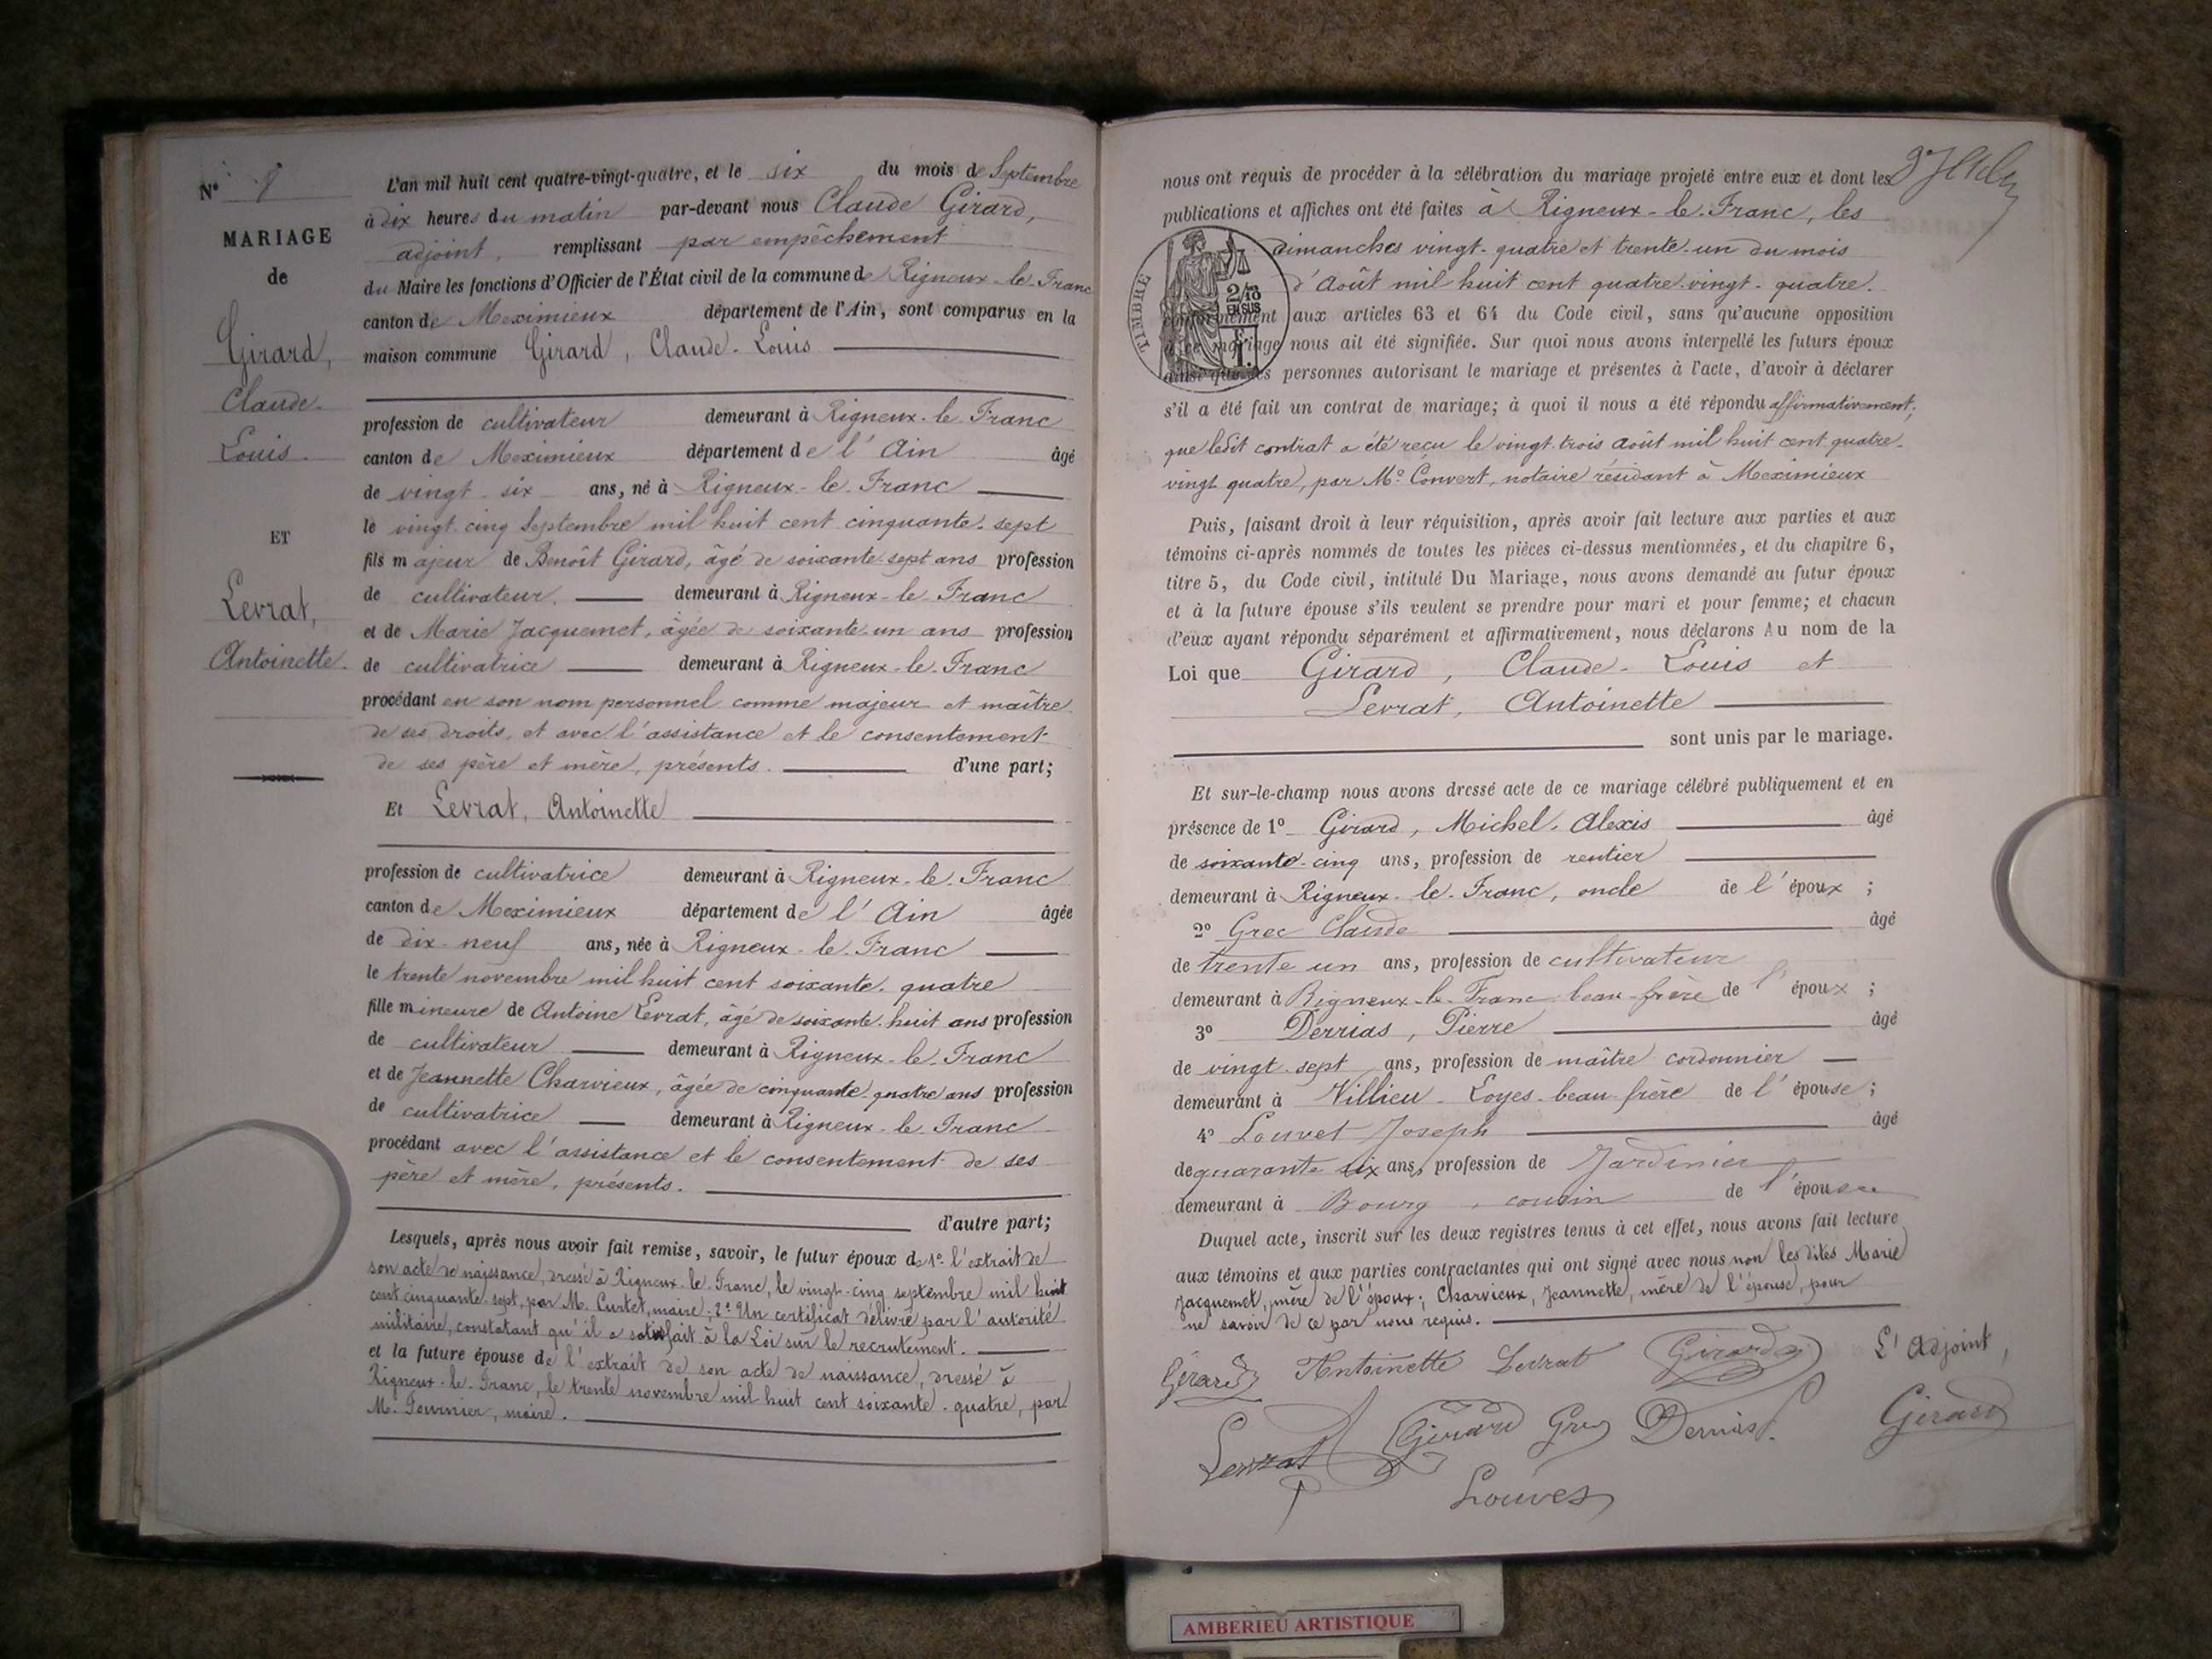 N°
MARIAGE
de
Girard,
Claude-
Louis.
ET
Levrat,
Antoinette.
L'an mil huit cent quatre-vingt-quatre, et le six du mois de Septembre
à dix heures du matin par-devant nous Claude Girard,
adjoint, remplissant par empêchement
du Maire les fonctions d'Officier de l'État civil de la commune de Rigneux-le-Franc
canton de Meximieux département de l'Ain, sont comparus en la
maison commune Girard, Claude-Louis
profession de cultivateur demeurant à Rigneux-le-Franc
canton de Meximieux département de l'Ain âgé
de vingt-six ans, né à Rigneux-le-Franc
le vingt-cinq Septembre mil huit cent cinquante-sept
fils majeur de Benoît Girard, âgé de soixante-sept ans profession
de cultivateur demeurant à Rigneux-le-Franc
et de Marie Jacquemet, âgée de soixante-un ans profession
de cultivatrice demeurant à Rigneux-le-Franc
procédant en son nom personnel comme majeur et maître
de ses droits, et avec l'assistance et le consentement
de ses père et mère, présents. d'une part;
Et Levrat, Antoinette
profession de cultivatrice demeurant à Rigneux-le-Franc
canton de Meximieux département de l'Ain âgée
de dix-neuf ans, née à Rigneux-le-Franc
le trente novembre mil huit cent soixante-quatre
fille mineure de Antoine Levrat, âgé de soixante-huit ans profession
de cultivateur demeurant à Rigneux-le-Franc
et de Jeannette Charvieux, âgée de cinquante-quatre ans profession
de cultivatrice demeurant à Rigneux-le-Franc
procédant avec l'assistance et le consentement de ses
père et mère, présents.
d'autre part;
Lesquels, après nous avoir fait remise, savoir, le futur époux de 1° l'extrait de
son acte de naissance, dressé à Rigneux-le-Franc, le vingt-cinq septembre mil huit
cent cinquante-sept, par M. Curtet, maire; 2° Un certificat délivré par l'autorité
militaire, constatant qu'il a satisfait à la Loi sur le recrutement.
et la future épouse de l'extrait de son acte de naissance, dressé à
Rigneux-le-Franc, le trente novembre mil huit cent soixante-quatre, par
M. Fournier, maire.
nous ont requis de procéder à la célébration du mariage projeté entre eux et dont les
publications et affiches ont été faites à Rigneux-le-Franc, les
dimanches vingt-quatre et trente-un du mois
d'Août mil huit cent quatre-vingt-quatre.
TIMBRE
2/10
EN SUS
1 F.
conformément aux articles 63 et 64 du Code civil, sans qu'aucune opposition
à ce mariage nous ait été signifiée. Sur quoi nous avons interpellé les futurs époux
ainsi que les personnes autorisant le mariage et présentes à l'acte, d'avoir à déclarer
s'il a été fait un contrat de mariage; à quoi il nous a été répondu affirmativement;
que ledit contrat a été reçu le vingt-trois août mil huit cent quatre-
vingt quatre, par Me Convert, notaire résidant à Meximieux
Puis, faisant droit à leur réquisition, après avoir fait lecture aux parties et aux
témoins ci-après nommés de toutes les pièces ci-dessus mentionnées, et du chapitre 6,
titre 5, du Code civil, intitulé Du Mariage, nous avons demandé au futur époux
et à la future épouse s'ils veulent se prendre pour mari et pour femme; et chacun
d'eux ayant répondu séparément et affirmativement, nous déclarons Au nom de la
Loi que Girard, Claude-Louis et
Levrat, Antoinette
sont unis par le mariage.
Et sur-le-champ nous avons dressé acte de ce mariage célébré publiquement et en
présence de 1° Girard, Michel-Alexis âgé
de soixante-cinq ans, profession de rentier
demeurant à Rigneux-le-Franc, oncle de l'époux ;
2° Grec Claude âgé
de trente un ans, profession de cultivateur
demeurant à Rigneux-le-Franc beau-frère de l'époux ;
3° Derrias, Pierre âgé
de vingt-sept ans, profession de maître cordonnier
demeurant à Villieu-Loyes-beau-frère de l'épouse ;
4° Louvet Joseph âgé
de quarante six ans, profession de Jardinier
demeurant à Bourg, cousin de l'épouse
Duquel acte, inscrit sur les deux registres tenus à cet effet, nous avons fait lecture
aux témoins et aux parties contractantes qui ont signé avec nous non les dites Marie
Jacquemet, mère de l'époux; Charvieux, Jeannette, mère de l'épouse, pour
ne savoir de ce par nous requis.
Girard Antoinette Levrat Girard L'Adjoint,
Levrat Girard Grec Derrias Girard
Louvet
AMBERIEU ARTISTIQUE